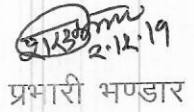 2.12.19
प्रभारी भण्डार